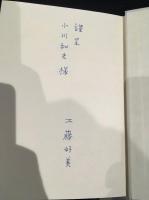 謹呈
小川和夫様
工藤好美